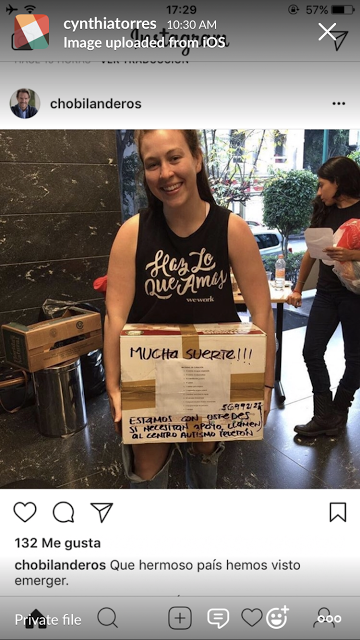 17:29
57%
cynthiatorres 10:30 AM
Image uploaded from iOS
Instagram
VER TRADUCCIÓN
chobilanderos
Haz Lo
Que Amas
wework
MUCHA SUERTE!!!
ESTAMOS CON USTEDES
SI NECESITAN APOYO, LLAMEN
AL CENTRO AUTISMO TELETON
132 Me gusta
chobilanderos Que hermoso país hemos visto
emerger.
Private file